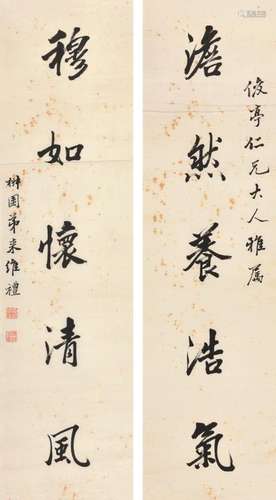 俊亭仁兄大人雅属
澹然養浩氣
穆如懷清風
榭園弟来維禮